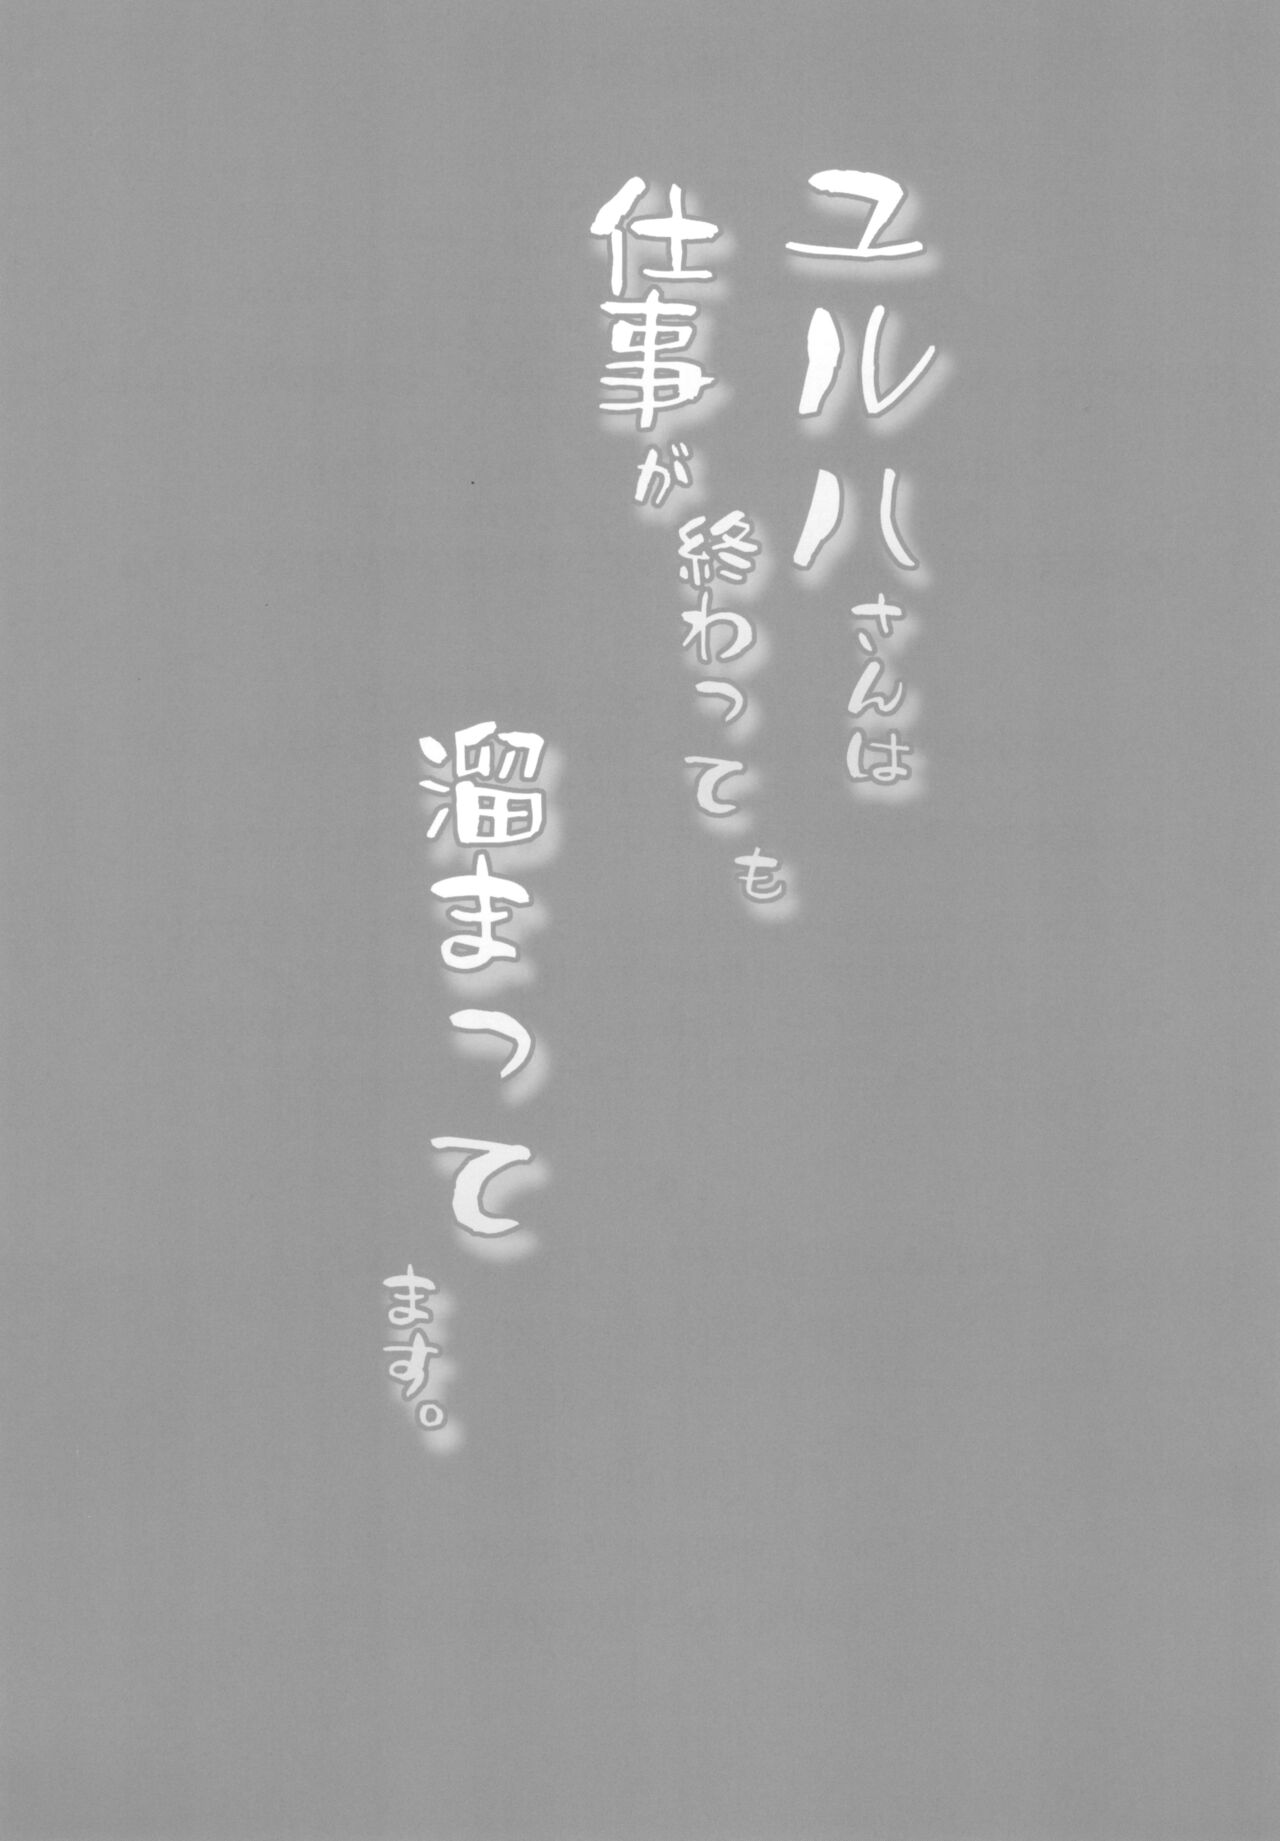 ユルハさんは
仕事が終わっても
溜まってます。